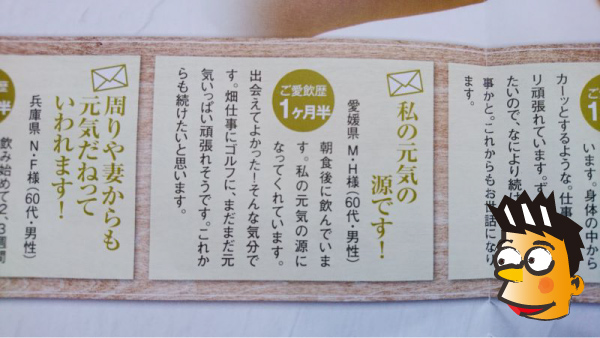 ご
1
います。身体の中から
カーッとするような。仕事
リ頑張れています。ず
たいので、なにより続け
事かと。これからもお世話になり
ます。
私の元気の
源です！
ご愛飲歴
1ヶ月半
愛媛県 M・H様（60代・男性）
朝食後に飲んでいま
す。私の元気の源に
なってくれています。
出会えてよかった！そんな気分で
す。畑仕事にゴルフに、まだまだ元
気いっぱい頑張れそうです。これか
らも続けたいと思います。
周りや妻からも
元気だねって
いわれます！
半
兵庫県 N・F様（60代・男性）
飲み始めて2、3週間